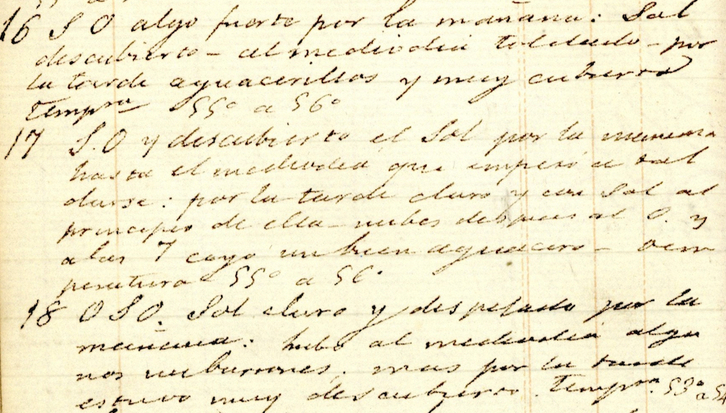 16 S O algo fuerte por la mañana: Sol
descubierto - al mediodia toldado - por
la tarde aguacerillos y muy cubierto
Tempra 55° a 56°
17 S.O y descubierto el Sol por la mañana
hasta el mediodia que empesó a tol
darse: por la tarde claro y con Sol al
principio de ella - nubes despues al O. y
a las 7 cayó un buen aguacero - Tem
peratura 55° a 56°
18 O S O. Sol claro y despejado por la
mañana: hubo al mediodia algu
nos nubarrones; mas por la tarde
estuvo muy descubierto. Tempra. 53° a 54